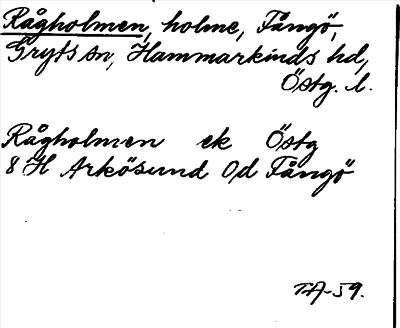 Rågholmen, holme, Fångö,
Gryts sn, Hammarkinds hd,
Östg. l.
Rågholmen ek Östg
8 H Arkösund Od Fångö
TA-59.